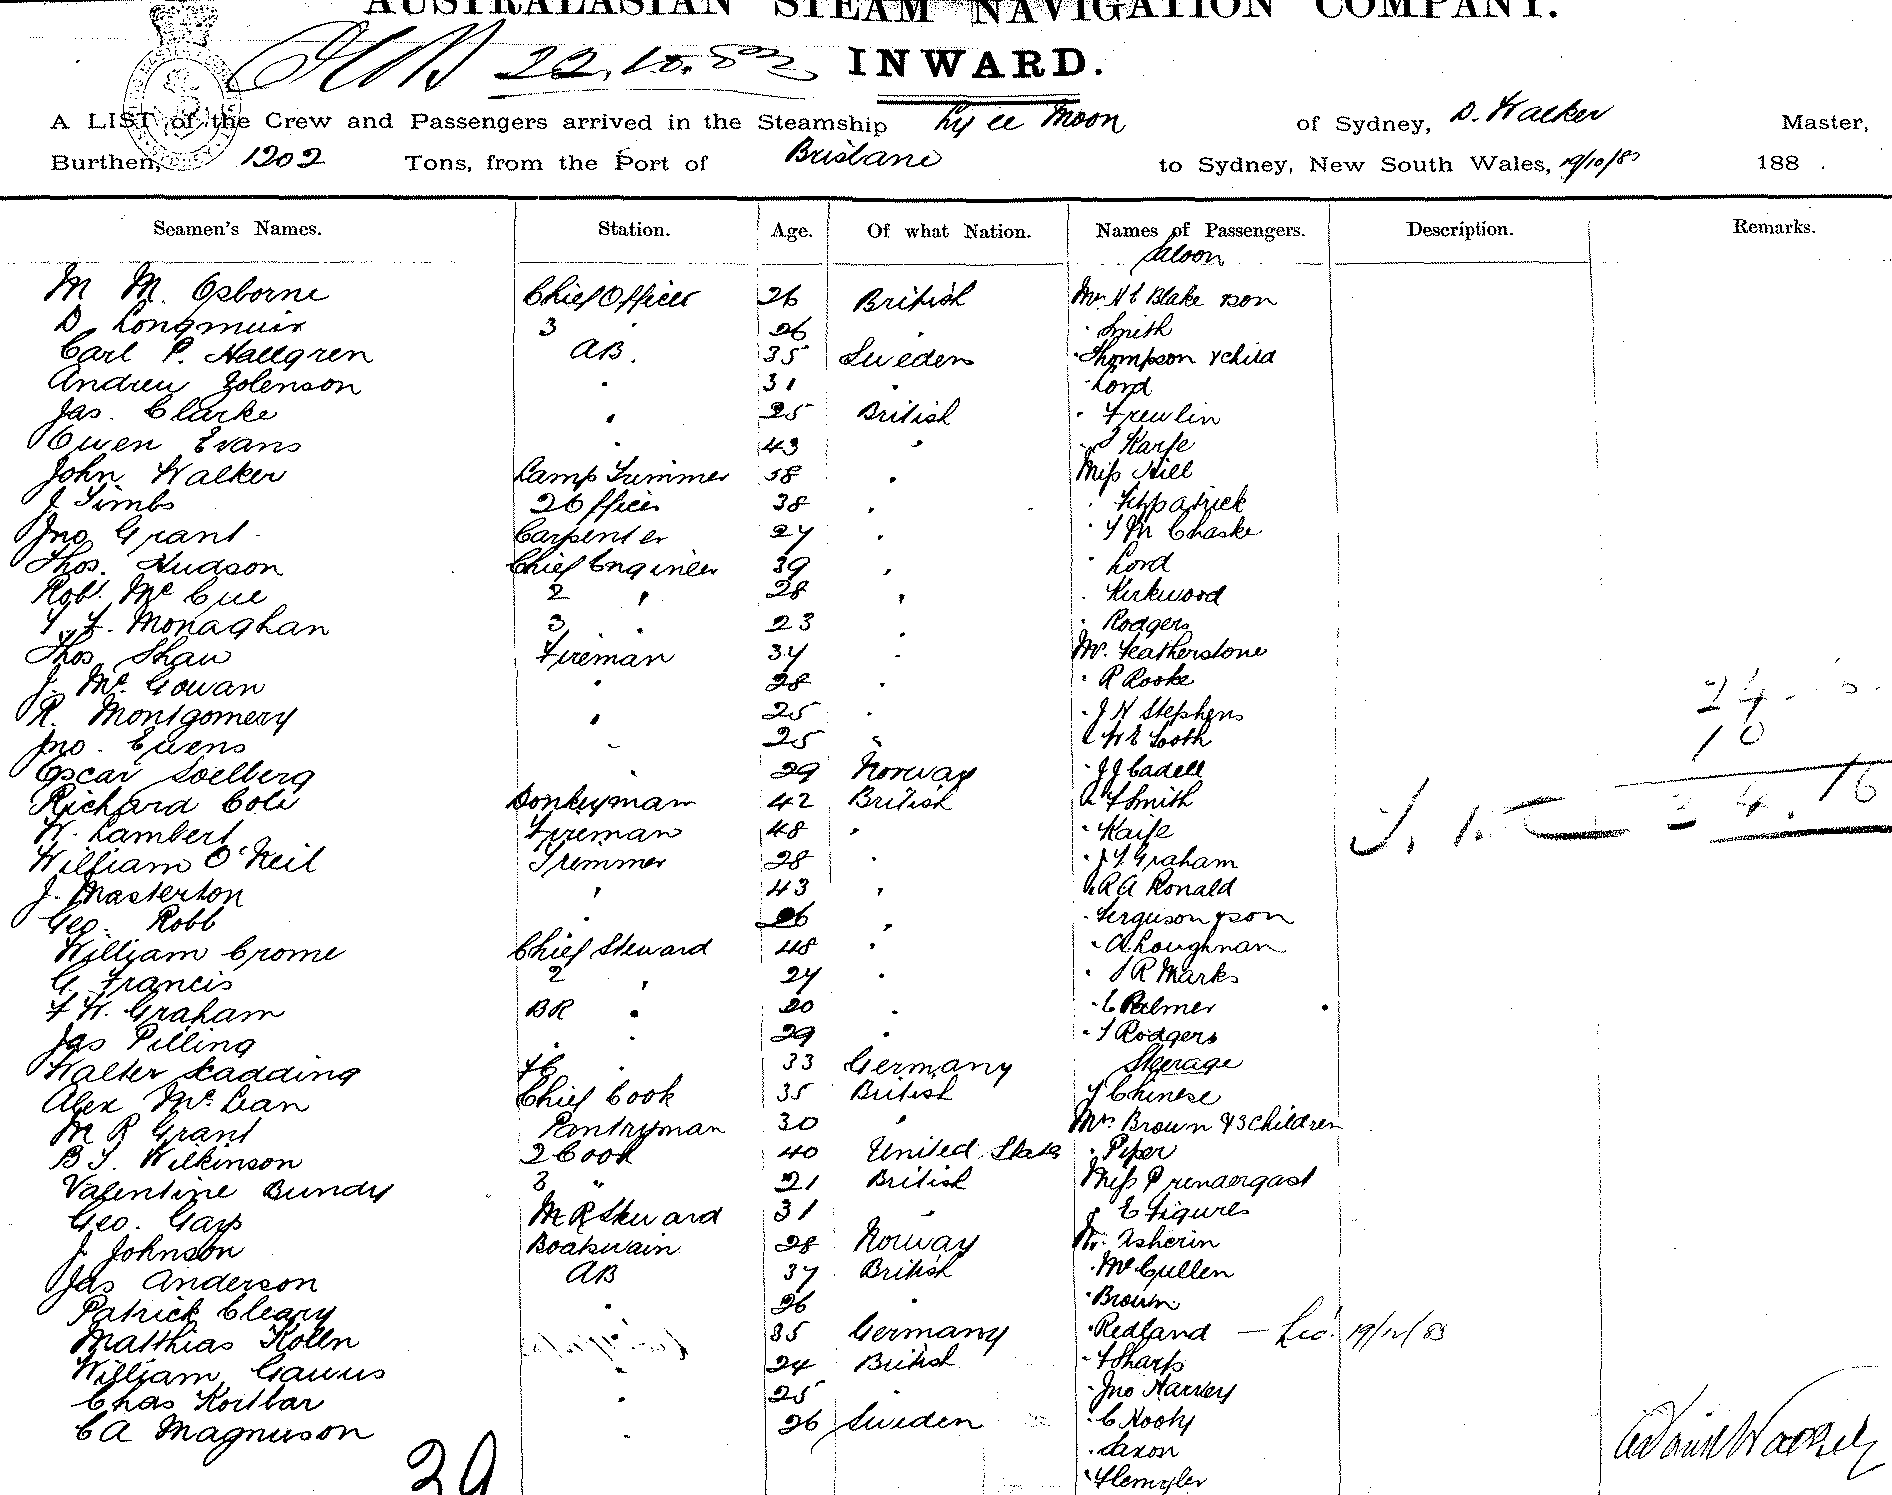 AUSTRALASIAN STEAM NAVIGATION COMPANY.
22.10.83 INWARD.
A LIST of the Crew and Passengers arrived in the Steamship Ly ee Moon of Sydney, D. Walker Master,
Burthen, 1202 Tons, from the Port of Brisbane to Sydney, New South Wales, 19/10/83 188 .
Seamen's Names. Station. Age. Of what Nation. Names of Passengers. Description. Remarks.
Saloon
M M. Osborne Chief Officer 26 British Mr H E Blake & son
D Longmuir 3 " 26 " " Smith
Carl P. Hallgren AB. 35 Sweden " Thompson & child
Andrew Zolenson " 31 " " Lord
Jas. Clarke " 25 British " Trewlin
Owen Evans " 43 "
John Walker Lamp Trimmer 58 " Miss Hill
J Timbs 2 Officer 38 " " Fitzpatrick
Jno Grant Carpenter 27 "
Thos. Hudson Chief Engineer 39 " " Lord
Robt. McCue 2 " 28 " " Kirkwood
Monaghan 3 " 23 " " Rodgers
Thos Shaw Fireman 34 " Mr. Featherstone
J. McGowan " 28 " " R Rooke
R. Montgomery " 25 " " J H Stephens
Jno. Evens " 25 "
Oscar Soelberg " 29 Norway " J J Cadell
Richard Cole Donkeyman 42 British " F Smith
W. Lambert Fireman 48 " " Kaife
William O'Neil Trimmer 28 " " J T. Graham
J. Masterton " 43 " " R A Ronald
Geo. Robb " 26 " " Ferguson & son
William Crome Chief Steward 48 " " A Loughnan
G. Francis 2 " 27 " " S R Marks
F W. Graham BR " 20 " " E Palmer
Jas Pilling " " 29 " " T Rodgers
Walter Scadding " 33 Germany Steerage
Alex McLean Chief Cook 35 British Chinese
M R Grant Pantryman 30 " Mrs Brown & 3 children
B J. Wilkinson 2 Cook 40 United States " Piper
Valentine Bundy 3 " 21 British Miss Prendergast
Geo. Gays M R Steward 31 " " E Figures
J. Johnson Boatswain 28 Norway Mr. Asherin
Jas Anderson AB 37 British " McCullen
Patrick Cleary " 26 " " Brown
Matthias Kolln " 35 Germany " Redland
William " 24 British " F Sharp
Chas Kortbar " 25 " " Jno Harvey
C A Magnuson " 26 Sweden
" Saxon
39
24
10
34.16
David Walker